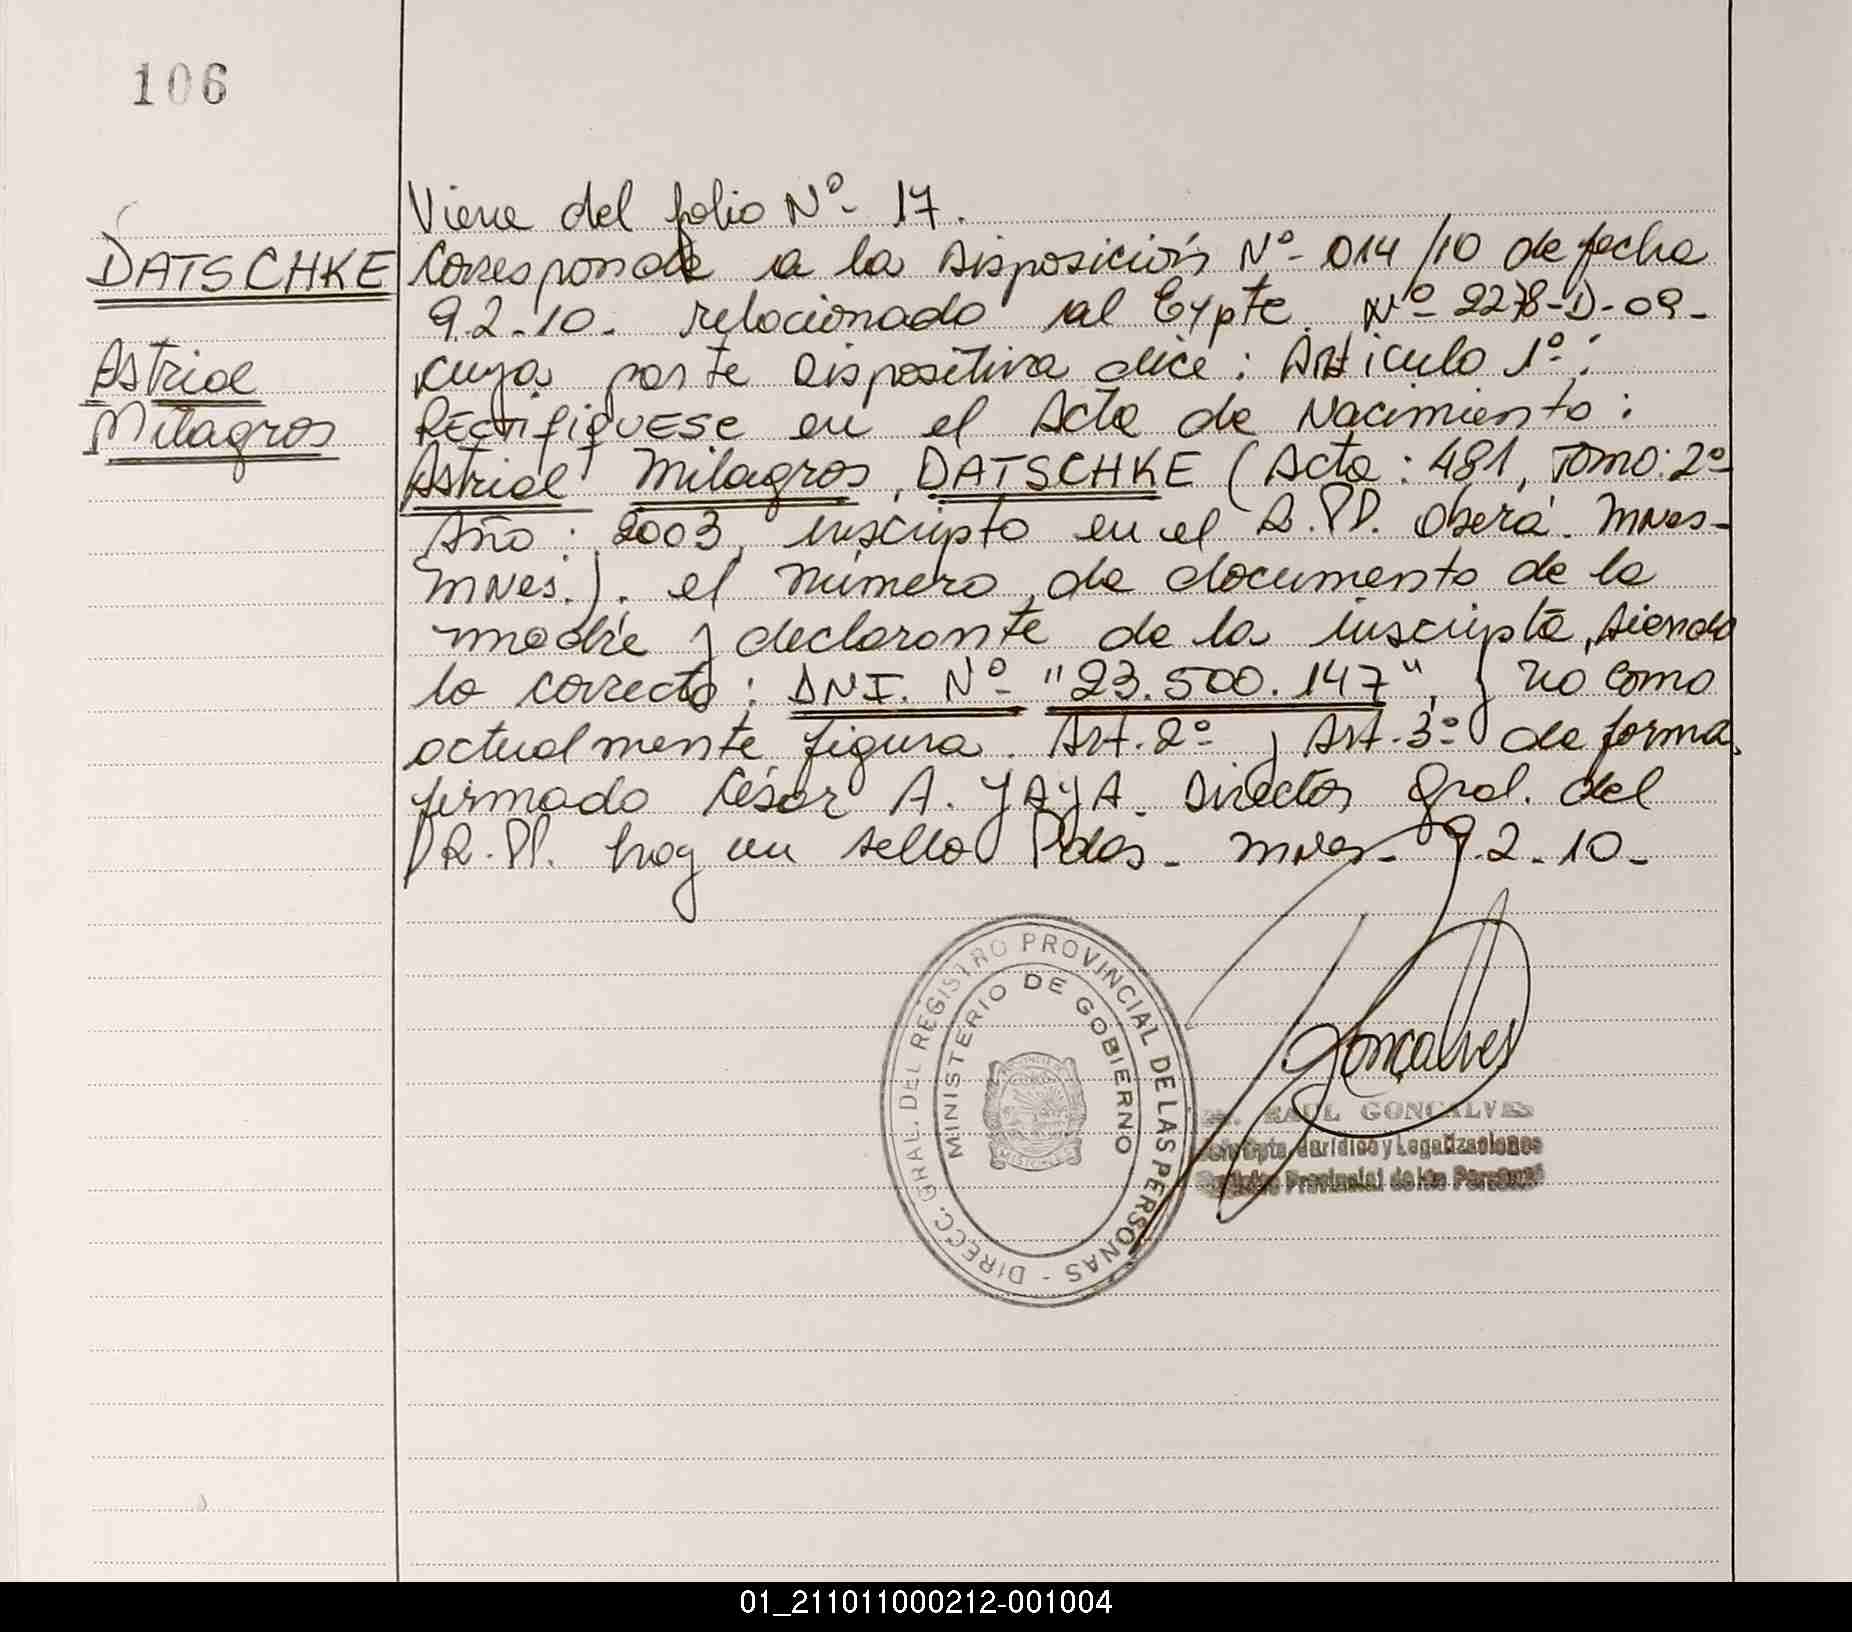 106
Viene del folio Nº- 17.
DATSCHKE
Corresponde a la Disposición Nº- 014/10 de fecha
9.2.10. relacionado al Expte. Nº- 2278-D-09-
Astrid
cuya parte dispositiva dice: Artículo 1º:
Milagros
RECTIFIQUESE en el Acta de Nacimiento:
Astrid Milagros DATSCHKE (Acta: 481, Tomo: 2º
Año: 2003, inscripto en el R.PP. Oberá. Mnes-
Mnes.). el número de documento de la
madre y declarante de la inscripta, siendo
lo correcto: DNI. Nº- "23.500.147", y no como
actualmente figura. Art. 2º y Art. 3º de forma,
firmado César A. YAYA. Director Gral. del
R.PP. hay un sello Pdas- Mnes- 9.2.10-
DIRECC. GRAL. DEL REGISTRO PROVINCIAL DE LAS PERSONAS -
MINISTERIO DE GOBIERNO
MISIONES
Gonçalves
RAUL GONCALVES
Jurídico y Legalizaciones
Provincial de las Personas
01_211011000212-001004